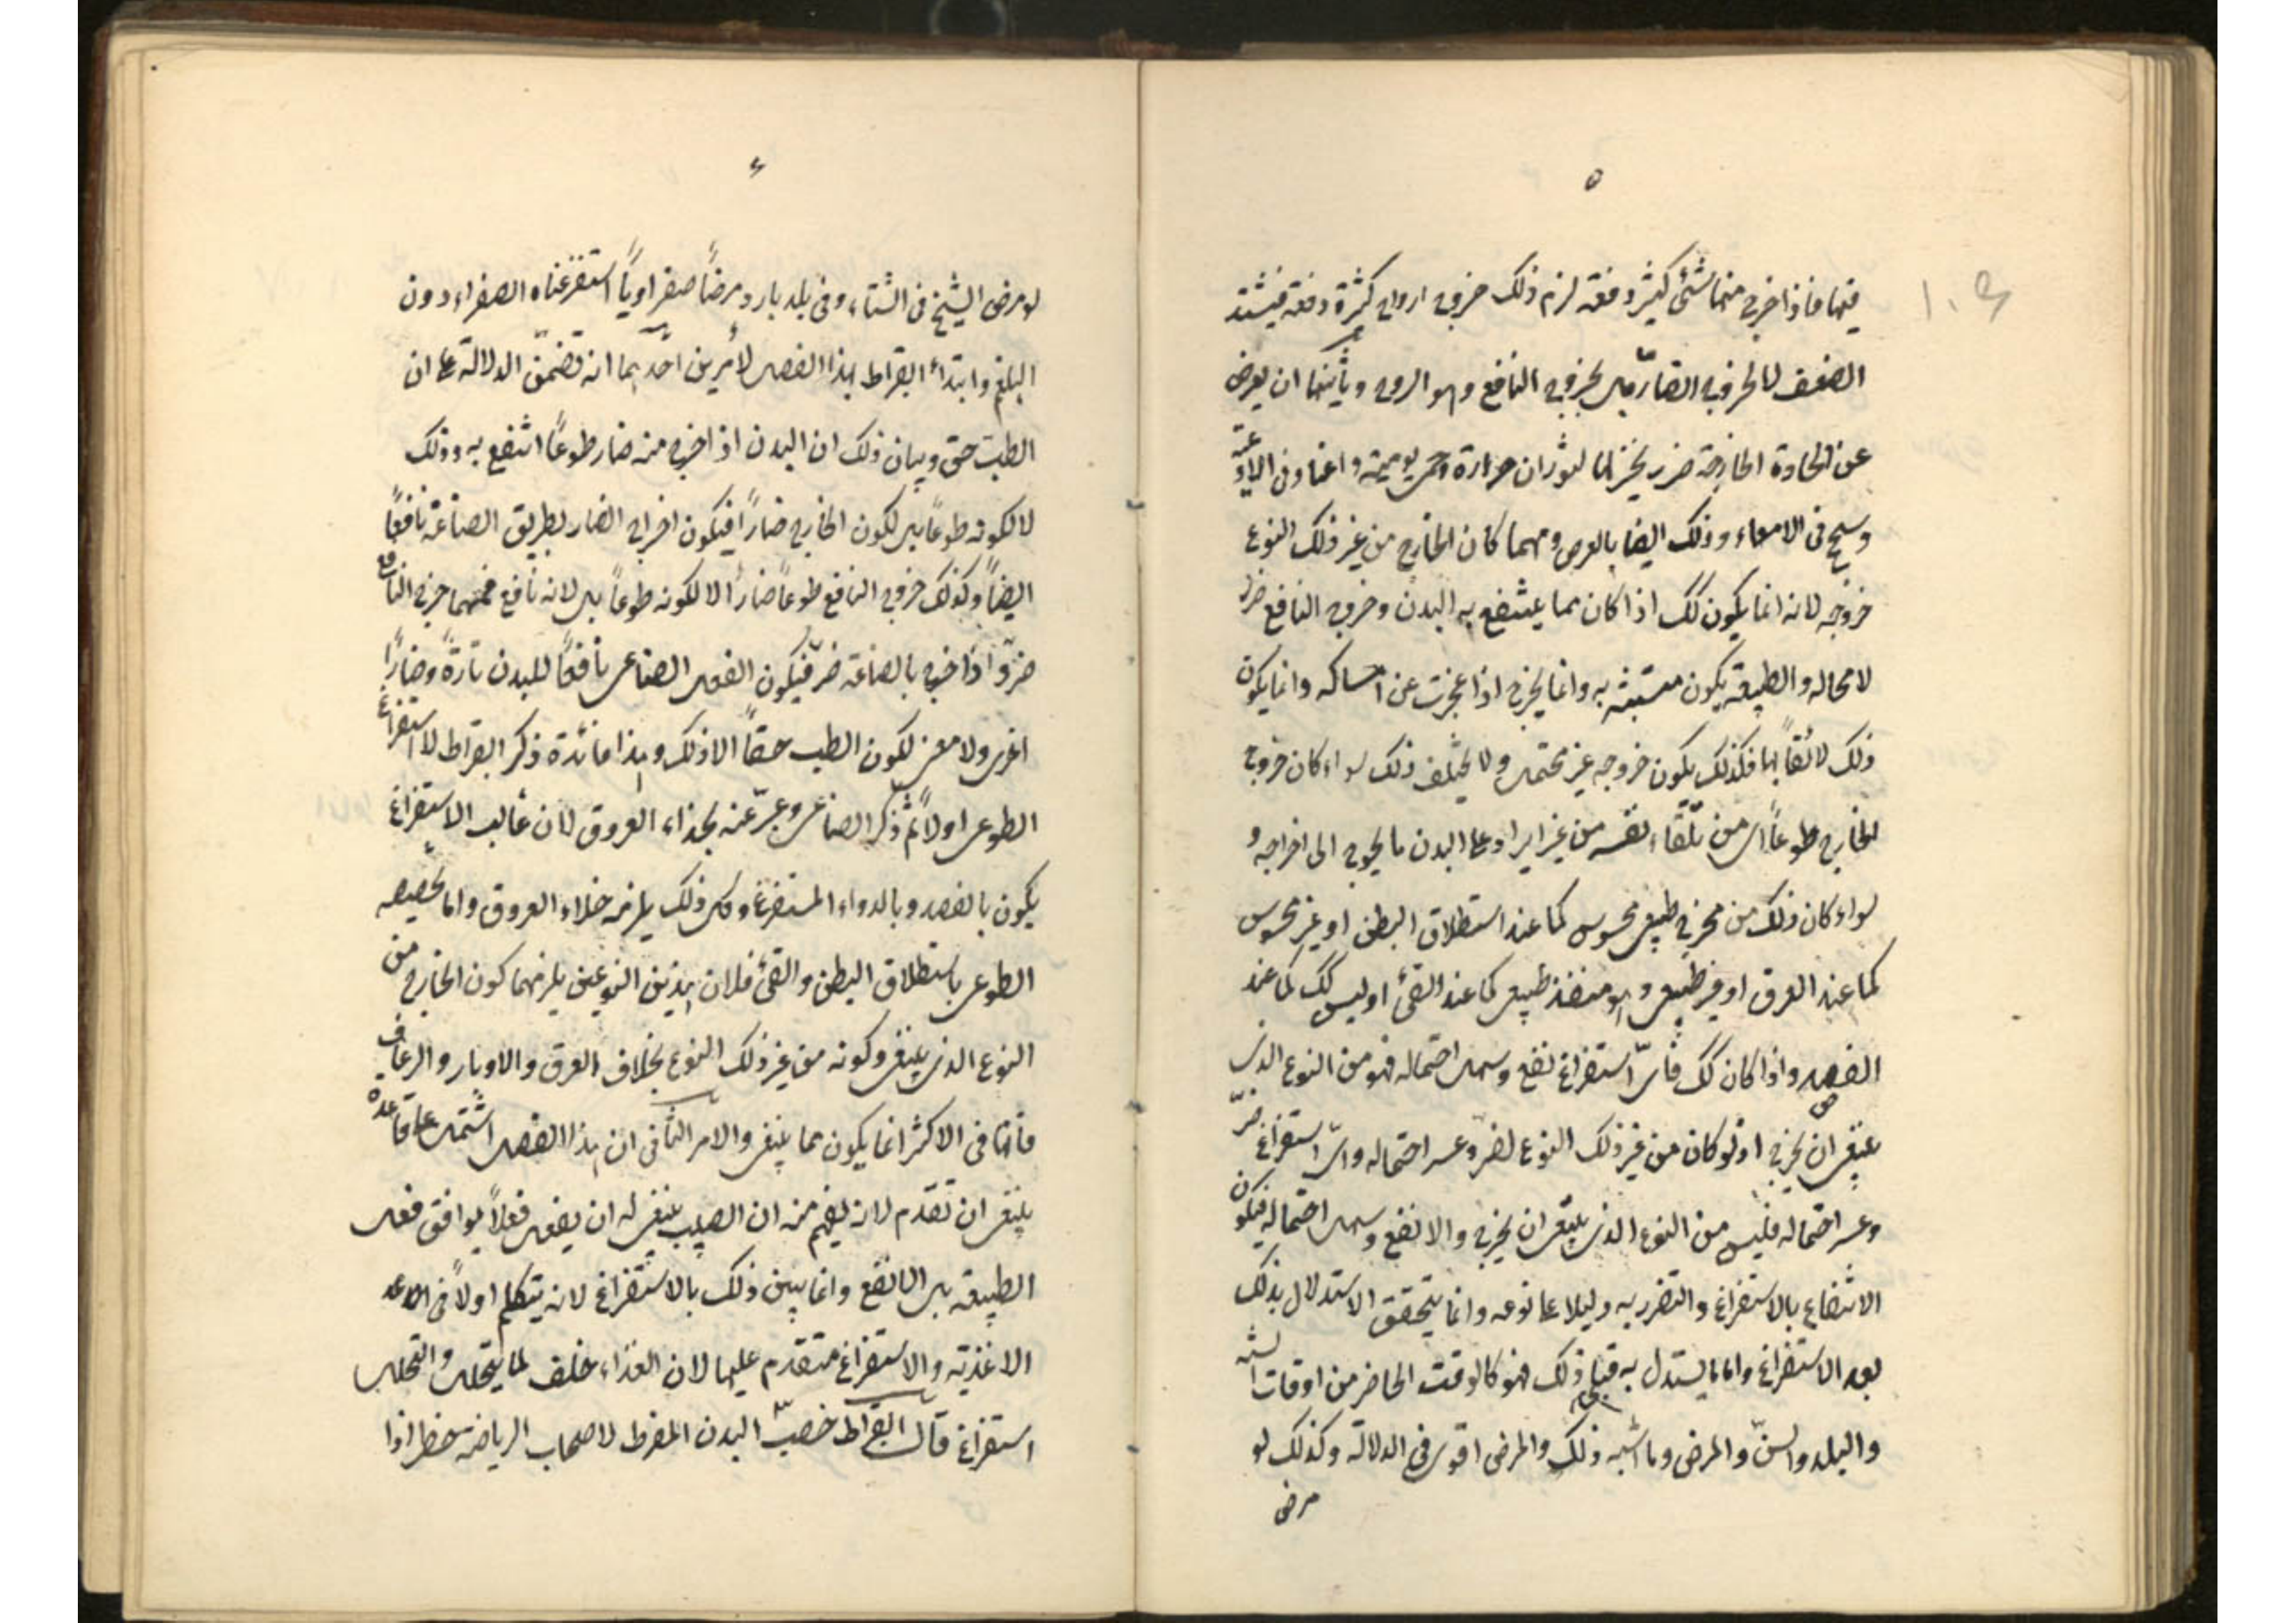 ٥
فيها فاذا خرج منها شئ كثير دفعة لزم ذلك خروج ارواح كثيرة دفعة فيشتد
الضعف لا لخروج الضار بل لخروج النافع وهو الروح وثانيها ان يعرض
عن المادة الخارجة ضرر بخروجها لثوران حرارة وحمى يومية واعنا وفى
وسحج فى الامعاء وذلك ايضا بالعرض ومهما كان الخارج من غير ذلك النوع
خروجه لانه انما يكون كك اذا كان مما ينتفع به البدن وخروج النافع ضرر
لا محاله والطبيعة يكون متشبثه به وانما يخرج اذا عجزت عن امساكه وانما يكون
ذلك لائقاً بها فكذلك يكون خروجه غير محتمل ولا يختلف ذلك سواء كان خروج
الخارج طوعاً اى من تلقاء نفسه من غير ايراد على البدن ما يحوج الى اخراجه و
سواء كان ذلك من مخرج طبيعى محسوس كما عند استطلاق البطن او غير محسوس
كما عند العرق او غير طبيعى وهو منفذ طبيعى كما عند القئ او ليس كك كما عند
الفصد واذا كان كك فأىّ استفراغ نفع وسهل احتماله فهو من النوع الذى
ينبغى ان يخرج اذ لو كان من غير ذلك النوع لضر وعسر احتماله واىّ استفراغ ضرّ
وعسر احتماله فليس من النوع الذى ينبغى ان يخرج والا نفع وسهل احتماله فيكون
الانتفاع بالاستفراغ والتضرر به دليلا على نوعه وانما يتحقق الاستدلال بذلك
بعد الاستفراغ واما ما يستدل به قبل ذلك فهو كالوقت الحاضر من اوقات السنه
والبلد والسنّ والمرض وما اشبه ذلك والمرض اقوى فى الدلالة وكذلك لو
مرض
۴
لو مرض الشيخ فى الشتاء وفى بلد بارد مرضاً صفراوياً استفرغناه الصفراء دون
البلغم وابتدأ ابقراط بهذا الفصل لأمرين احدهما انه تضمّن الدلالة على ان
الطب حق وبيان ذلك ان البدن اذا خرج منه ضار طوعاً انتفع به وذلك
لا لكونه طوعاً بل لكون الخارج ضاراً فيكون اخراج الضار بطريق الصناعة نافعاً
ايضاً وكذلك خروج النافع طوعاً ضاراً لا لكونه طوعاً بل لانه نافع فمهما خرج النافع
ضرّ واذا خرج بالصناعة ضرّ فيكون الفعل الصناعى نافعاً للبدن تارةً وضاراً
اخرى ولا معنى لكون الطب حقاً الا ذلك وهذا فائدة ذكر ابقراط لاستفراغ
الطوعى اولاً ثم ذكر الصناعى وعبرّ عنه بخلاء العروق لان غالب الاستفراغ
يكون بالفصد وبالدواء المستفرغ وكل ذلك يلزمه خلاء العروق واما تخصيصه
الطوعى باستطلاق البطن والقئ فلان هذين النوعين يلزمهما كون الخارج من
النوع الذى ينبغى وكونه من غير ذلك النوع بخلاف العرق والادبار والرعاف
فانها فى الاكثر انما يكون مما ينبغى والامر الثانى ان هذا الفصل اشتمل على قاعدة
ينبغى ان تقدم لانه يفهم منه ان الطبيب ينبغى له ان يفعل فعلاً يوافق فعل
الطبيعة بل النافع وانما يبين ذلك بالاستفراغ لانه يتكلم اولاً فى
الاغذية والاستفراغ متقدم عليها لان الغذاء خلف لما يتحلل والتحلل
استفراغ قال ابقراط خصب البدن المفرط لاصحاب الرياضة خطر اذا